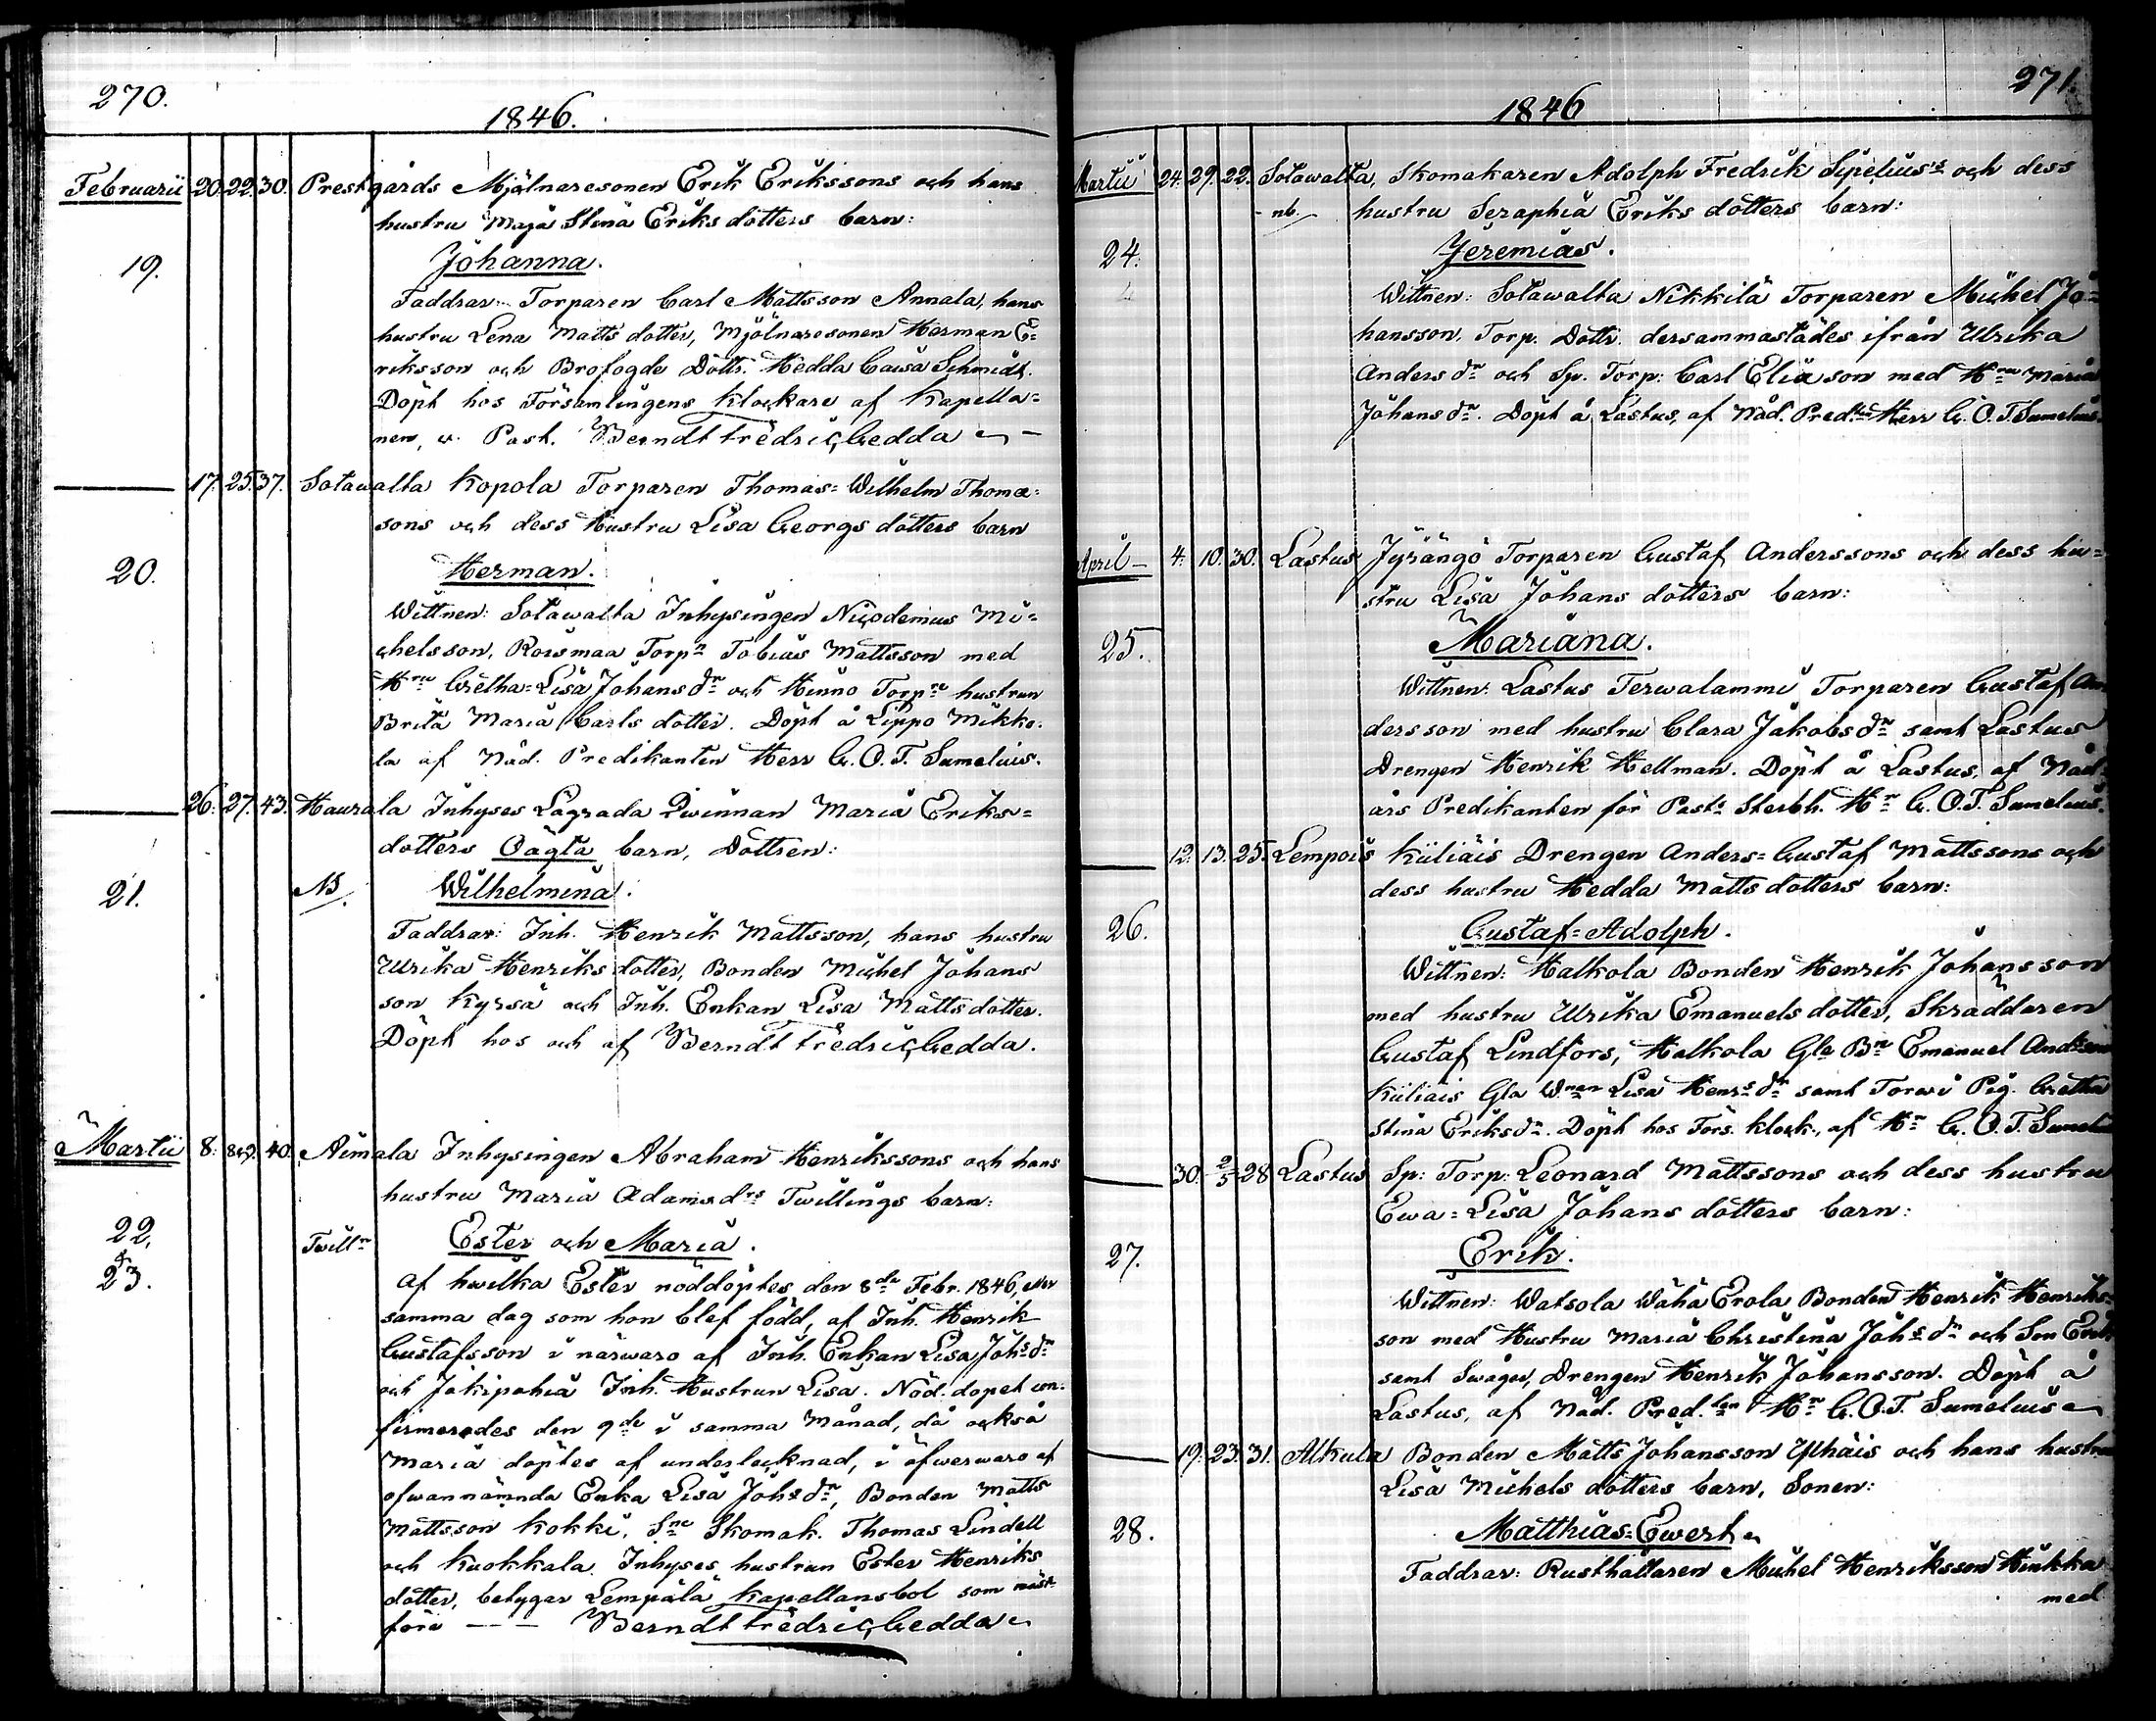 270.
1846.
Februarii 20. 22. 30. Prestgårds Mjölnaresonen Erik Erikssons och hans
hustru Maja Stina Eriks dotters barn:
19. Johanna.
Faddrar: Torparen Carl Mattsson Annala, hans
hustru Lena Matts dotter, Mjölnaresonen Herman E=
riksson och Brofogde Dottr. Hedda Caisa Schmidt.
Döpt hos Församlingens Klockare af Kapella=
nen, v. Past. Berndt Fredric Gedda
17. 25. 37. Sotawalta Kopola Torparen Thomas=Wilhelm Thoma=
sons och dess Hustru Lisa Georgs dotters barn
20. Herman.
Wittnen: Sotawalta Inhysingen Nicodemus Mi=
chelsson, Roismaa Torpn Tobias Mattsson med
Hru Gretha=Lisa Johans dr och Hinno Torpre hustrun
Brita Maria Carls dotter. Döpt å Lippo Mikko=
la af Nåd. Predikanten Herr G. O. T. Sumelius.
26. 27. 43. Haurala Inhyses Lägrada Qwinnan Maria Eriks=
dotters Oägta barn, Dottren:
21. NB. Wilhelmina.
Faddrar: Inh. Henrik Mattsson, hans hustru
Ulrika Henriks dotter, Bonden Michel Johans
son Kyrsä och Inh. Enkan Lisa Matts dotter.
Döpt hos och af Berndt Fredric Gedda.
Martii 8. 8&9. 40. Aimala Inhysingen Abraham Henrikssons och hans
hustru Maria Adams drs Twillings barn:
22. & 23. Twilln Ester och Maria.
af hwilka Ester nöddöptes den 8de Febr. 1846, eller
samma dag som hon blef född, af Inh. Henrik
Gustafsson i närwaro af Inh. Enkan Lisa Johs dr
och Jokipohia Inh. Hustrun Lisa. Nöd. dopet con=
firmerades den 9de i samma Månad, då också
Maria döptes af undertecknad, i öfwerwaro af
ofwannämnda Enka Lisa Johs dr, Bonden Matts
Mattsson Kokki, Sne Skomak. Thomas Lindell
och Kuokkala Inhyses hustrun Ester Henriks
dotter, betygar Lempälä Kapellansbol som
före — — Berndt Fredric Gedda
271.
1846
Martii 24. 29. 22. Sotawalta, Skomakaren Adolph Fredrik Sipelius's och dess
nb. hustru Seraphia Eriks dotters barn:
24. Jeremias.
Wittnen: Sotawalta Nikkilä Torparen Michel Jo=
hansson, Torp. Dottr. dersammastädes ifrån Ulrika
Anders dr och Sp. Torp. Carl Eliason med Hru Maria
Johans dr. Döpt å Lastus, af Nåd. Predten Herr G. O. T. Sumelius.
April 4. 10. 30. Lastus Jyrängö Torparen Gustaf Anderssons och dess hu=
stru Lisa Johans dotters barn:
25. Mariana.
Wittnen: Lastus Terwalammi Torparen Gustaf An
dersson med hustru Clara Jakobs dr samt Lastus
Drengen Henrik Hellman. Döpt å Lastus, af Nåd=
års Predikanten för Pasts Sterbh. Hr G. O. T. Sumelius.
12. 13. 25. Lempois Kiliäis Drengen Anders=Gustaf Mattssons och
dess hustru Hedda Matts dotters barn:
26. Gustaf=Adolph.
Wittnen: Halkola Bonden Henrik Johansson
med hustru Ulrika Emanuels dotter, Skräddaren
Gustaf Lindfors, Halkola Gla Bn Emanuel Andrsson
Kiliäis Gla Wnan Lisa Henrs dr samt Torwi Pig. Gretha
Stina Eriks dr. Döpt hos Förs. klock., af Hr G. O. T. Sumelius
30. 2/5 28 Lastus Sp: Torp. Leonard Mattssons och dess hustru
Ewa=Lisa Johans dotters barn:
27. Erik.
Wittnen: Watsola Wähä Erola Bonden Henrik Henriks=
son med Hustru Maria Christina Johs dr och Son Erik
samt Swåger, Drengen Henrik Johansson. Döpt å
Lastus, af Nåd. Pred.ten Hr G. O. T. Sumelius
19. 23. 31. Alkula Bonden Matts Johansson Ylhäis och hans hustru
Lisa Michels dotters barn, Sonen:
28. Matthias=Ewert
Faddrar: Rusthållaren Michel Henriksson Hiukka
med